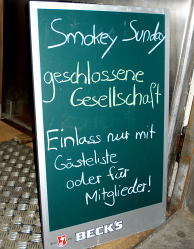 Smokey Sunday
geschlossene
Gesellschaft
Einlass nur mit
Gästeliste
oder für
Mitglieder!
BECK'S